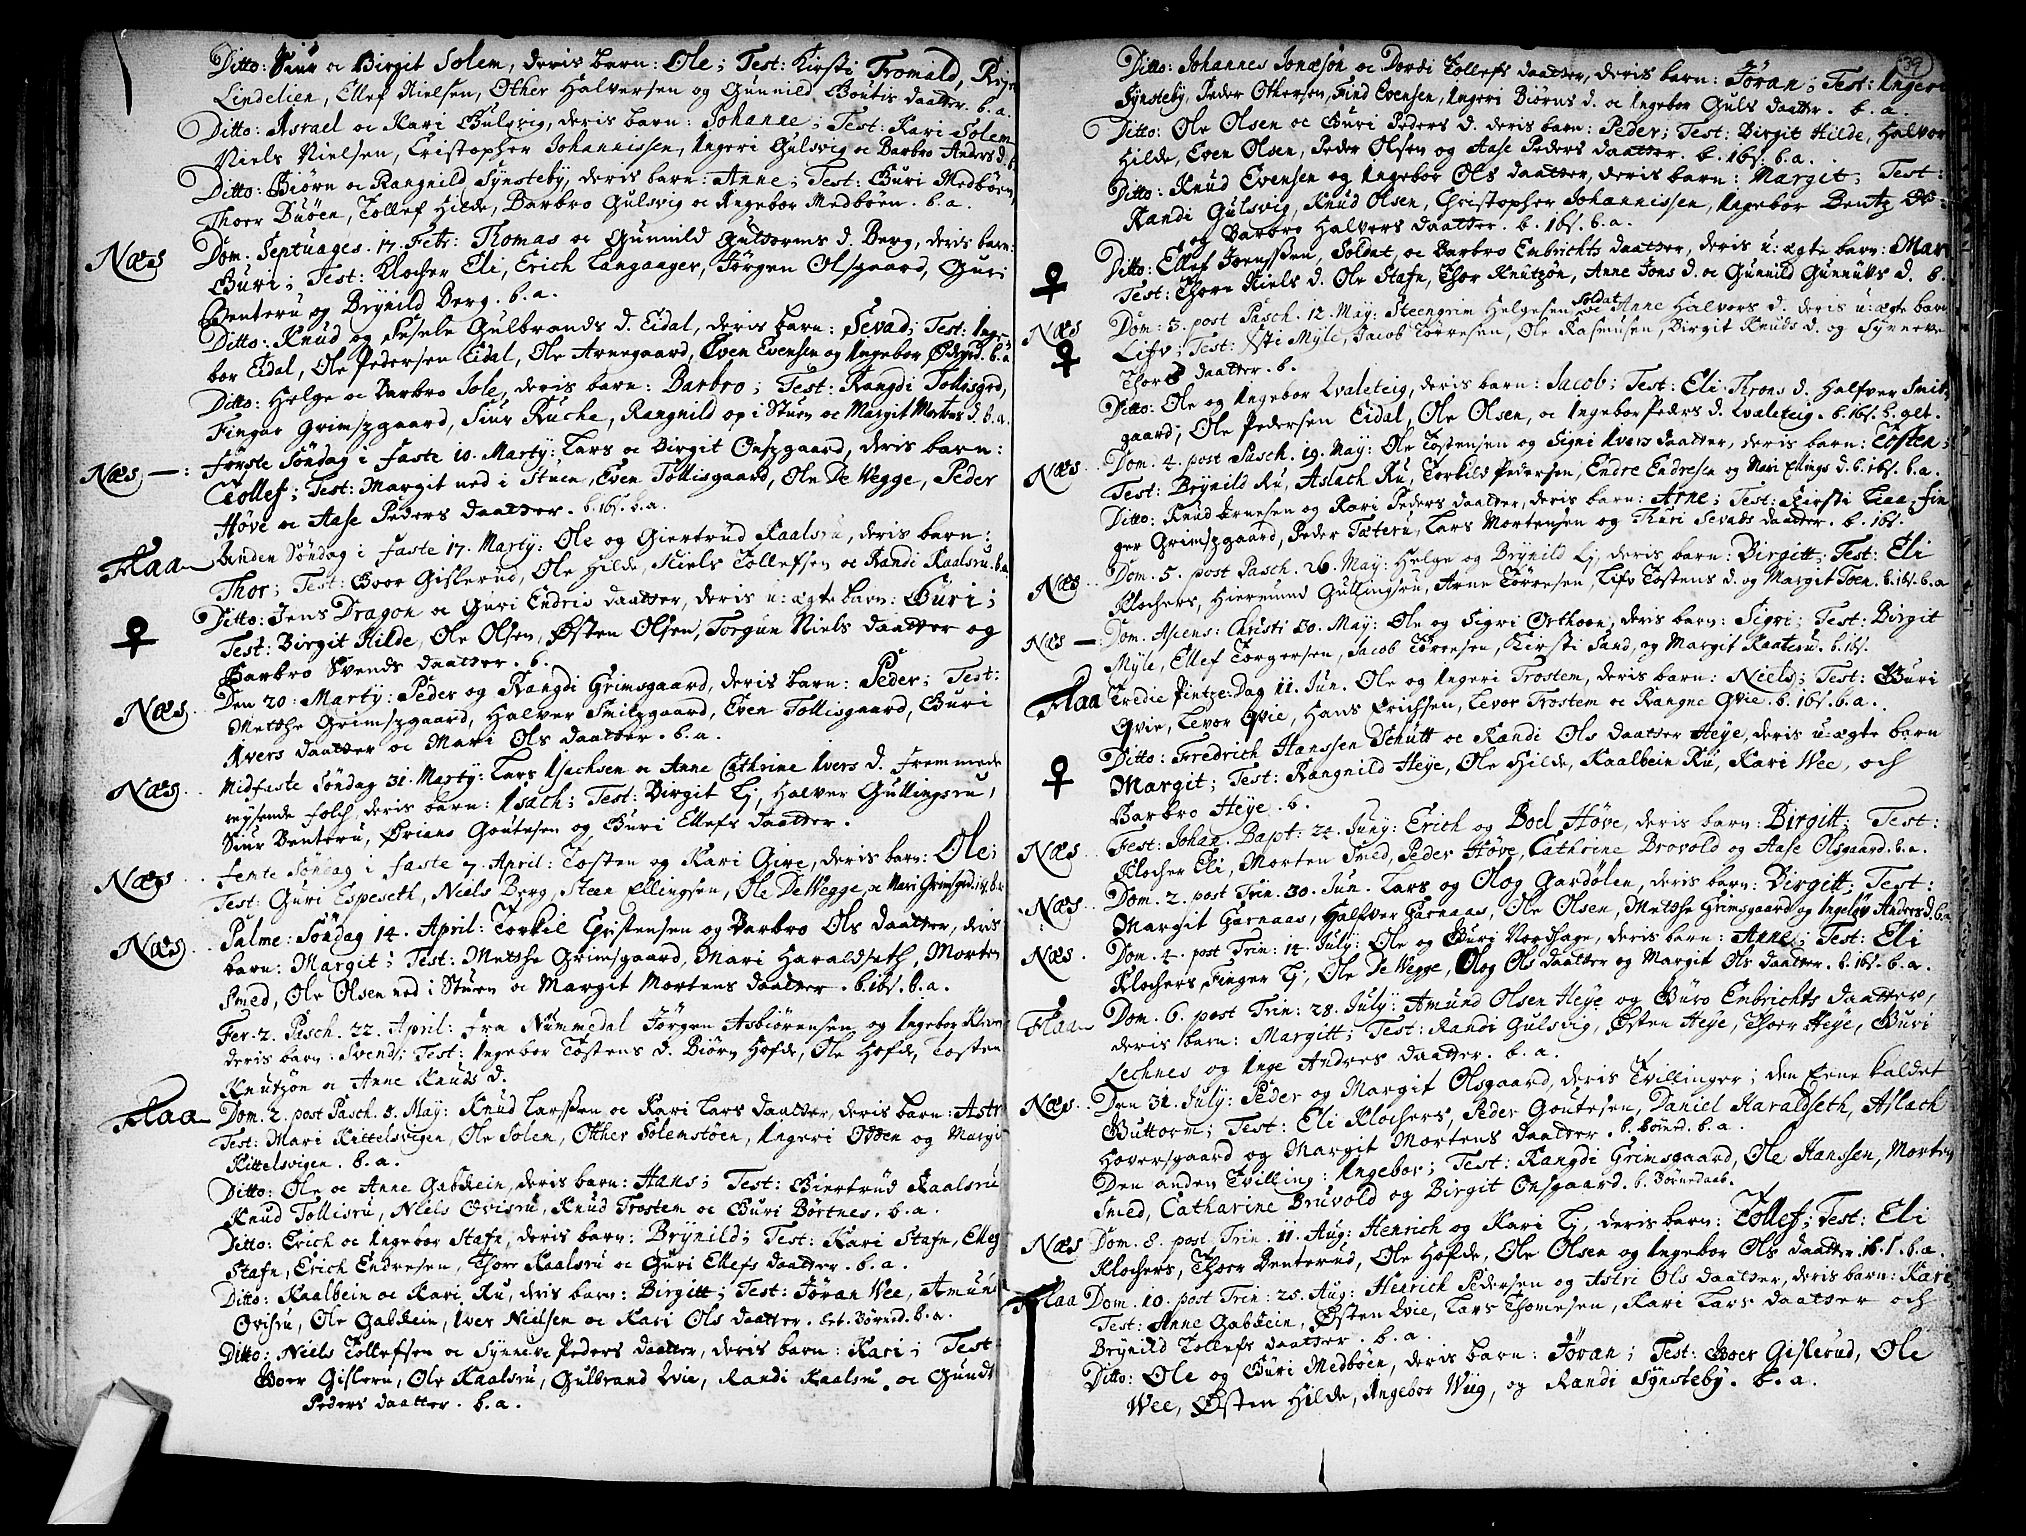 Ditto: Siur oc Birgit Solem, deris barn: Ole; Test: Kirsti Tromald,
Lindelien, Ellef Nielsen, Other Halversen og Gunnild Boutis daatter. b. a.
Ditto: Asrael oc Kari Gulsvig, deris barn: Johanne; Test: Kari Solem
Niels Nielsen, Cristopher Johannissen, Ingeri Gulsvig oc Barbro Anders d. b.
Ditto: Biørn oc Rangnild Synsteby, deris barn: Anne; Test: Guri Medbøen,
Thoer Buøen, Tollef Hilde, Barbro Gulsvig oc Ingebor Medbøen. b. a.
Næs Dom. Septuages. 17. Febr: Thomas oc Gunnild Guttorms d. Berg, deris barn:
Guri; Test: Klocher Eli, Erich Langaager, Jørgen Olsgaard, Guri
Benteru og Brynild Berg. b. a.
Ditto: Knud og Sesele Gulbrands d. Eidal, deris barn: Sevad; Test: Inge-
bor Eidal, Ole Pedersen Eidal, Ole Arnegaard, Even Evensen og Ingebor Ødegrd. b. a
Ditto: Helge oc Barbro Sole, deris barn: Barbro; Test: Rangdi Tollisgrd,
Fingar Grimszgaard, Siur Ruche, Rangnild op i Stuen oc Margit Mortens d. b. a.
Næs —: første Søndag i faste 10. Marty: Lars oc Birgit Onszgaard, deris barn:
Tollef; Test: Margit ned i Stuen, Even Tollisgaard, Ole De Wegge, Peder
Høve oc Aase Peders daatter. b. 16s. b. a.
Flaa Anden Søndag i faste 17. Marty: Ole og Giertrud Kaalsru, deris barn:
Thor; Test: Boer Gislerud, Ole Hilde, Niels Tollefsen oc Randi Kaalsru. b. a
♀ Ditto: Jens Dragon oc Guri Endris daatter, deris u: ægte barn: Guri;
Test: Birgit Hilde, Ole Olsen, Østen Olsen, Torgun Niels daatter og
Barbro Svends daatter. b.
Næs Den 20. Marty: Peder og Rangdi Grimsgaard, deris barn: Peder; Test:
Metthe Grimszgaard, Halver Smitzgaard, Even Tollisgaard, Guri
Ivers daatter oc Mari Ols daatter. b. a.
Næs. Midfaste Søndag 31. Marty: Lars Isachsen oc Anne Cathrine Ivers d. fremmede
reysende folch, deris barn: Isach; Test: Birgit Lj, Halver Gullingsru,
Siur Benteru, Ørians Goutesen og Guri Ellefs daatter.
Næs femte Søndag i faste 7. April: Tosten og Kari Gire, deris barn: Ole;
Test: Guri Espeseth, Niels Berg, Steen Ellingsen, Ole De Wegge, oc Mari Grimsgrd.
Næs Palme: Søndag 14. April: Torkil Gistensen og Barbro Ols daatter, deris
barn: Margit; Test: Metthe Grimsgaard, Mari Haraldseth, Morten
Smed, Ole Olsen ned i Stuen oc Margit Mortens daatter. b. 16s. b. a.
Fer. 2. Pasch. 22. April: fra Nummedal Jørgen Asbiørensen og Ingebor
deris barn: Svend; Test: Ingebor Tostens d. Biørn Hofde, Ole Hofde, Tosten
Knutzøn oc Anne Knuds d.
Flaa Dom. 2. post Pasch. 5. May: Knud Larssen oc Kari Lars daatter, deris barn: Astri
Test: Mari Kittelsvigen, Ole Solem, Other Solemstøen, Ingeri Odden og Margi
Kittelsvigen. b. a.
Ditto: Ole oc Anne Gabdein, deris barn: Hans; Test: Giertrud Kaalsru
Knud Tollisru, Niels Øvisru, Knud Trostem oc Guri Børtnes. b. a.
Ditto: Erich oc Ingebor Stafn, deris barn: Brynild; Test: Kari Stafn, Ellef
Stafn, Erich Endresen, Thoer Kaalsru oc Guri Ellefs daatter. b. a.
Ditto: Kaalbein oc Kari Ru, deris barn: Birgitt; Test: Jøran Wee, Amund
Øvisru, Ole Gabdein, Iver Nielsen oc Kari Ols daatter. bet. Børned. b. a.
Ditto: Niels Tollefsen oc Synneve Peders daatter, deris barn: Kari; Test:
Boer Gisleru, Ole Kaalsru, Gulbrand Qvie, Randi Kaalsru oc Gundi
Peders daatter. b. a.
39
Ditto: Johannes Jonæsøn oc Dordi Tollefs daatter, deris barn: Jøran; Test: Ingeri
Synsteby, Peder Othersen, Find Evensen, Ingeri Biørns d. oc Ingebor Guls daatter. b. a.
Ditto: Ole Olsen oc Guri Peders d. deris barn: Peder; Test: Birgit Hilde, Halvor
Hilde, Even Olsen, Peder Olsen og Aase Peders daatter. b. 16s. b. a.
Ditto: Knud Evensen og Ingebor Ols daatter, deris barn: Margit; Test:
Randi Gulsvig, Knud Olsen, Christopher Johannissen, Ingebor Bentz D:
og Barbro Halvers daatter. b. 16s. b. a.
♀ Ditto: Ellef Jornssen, Soldat, oc Barbro Embrichts daatter, deris u: ægte barn: Mari
Test: Thore Niels d. Ole Stafn, Thor Knutzøn, Anne Jons d. oc Gunnild Gunnulfs d. b.
Næs Dom: 3. post Pasch. 12. May: Steengrim Helgesen Soldat oc Anne Halvors d. deris u: ægte barn
♀ Lifv; Test: Asti Myle, Jacob Torresen, Ole Rasmusen, Birgit Knuds d. og Synneve
Thors daatter. b.
Ditto: Ole og Ingebor Qvaleteig, deris barn: Jacob; Test: Eli Throns d. Halfver Smit-
gaard, Ole Pedersen Eidal, Ole Olsen, oc Ingebor Peders d. Qvaleteig. b. 16s. b. get.
Næs Dom. 4. post Pasch. 19. May: Ole Tostensen og Signi Ivers daatter, deris barn: Tosten;
Test: Brynild Ru, Aslach Ru, Torkild Pedersen, Endre Endresen og Mari Ellings d. b. 16s. b. a.
Ditto: Knud Arnesen og Kari Peders daatter, deris barn: Arne; Test: Kirsti Liaa, Fin
ger Grimszgaard, Peder Tæteru, Lars Mortensen og Thuri Sevads daatter. b. 16s.
Næs Dom. 5. post Pasch. 26. May: Helge og Brynild Lj, deris barn: Birgitt; Test: Eli
Klochers, Hiermund Gullingsru, Arne Torresen, Lifv Tostens d. og Margit Toen. b. 16s. b. a
Næs —: Dom. Asens: Christi 30. May: Ole og Sigri Orthoen, deris barn: Sigri; Test: Birgit
Myle, Ellef Torgersen, Jacob Torresen, Kirsti Sand, og Margit Raateru. b. 16s.
Flaa Tredie Pintze: Dag 11. Jun. Ole og Ingeri Trostem, deris barn: Niels; Test: Guri
Qvie, Levor Qvie, Hans Erichsen, Levor Trostem oc Rangne Qvie. b. 16s. b. a.
♀ Ditto: Fredrich Hanssen Schutt oc Randi Ols daatter Heye, deris u: ægte barn
Margit; Test: Rangnild Heye, Ole Hilde, Kaalbein Ru, Kari Wee, och
Barbro Heye. b.
Næs Fest: Johan. Bapt: 24. Juny: Erich og Boel Høve, deris barn: Birgitt; Test:
Klocher Eli, Morten Smed, Peder Høve, Cathrine Brovold og Aase Olsgaard. b. a.
Næs Dom. 2. post Trin. 30. Jun. Lars og Olog Gardølen, deris barn: Birgitt; Test:
Margit Garnaas, Halfver Garnaas, Ole Olsen, Metthe Grimsgaard og Ingebor Anders d. b. a
Næs. Dom. 4. post Trin: 14. July: Ole og Guri Nordhage, deris barn: Anne; Test: Eli
Klochers, Finger Lj, Ole De Wegge, Olog Ols daatter og Margit Ols daatter. b. 16s. b. a.
Flaa Dom. 6. post Trin: 28. July: Amund Olsen Heye og Guro Embrichts daatter,
deris barn: Margitt; Test: Randi Gulsvig, Østen Heye, Thoer Heye, Guri
Lechnes og Inge Andres daatter. b. a.
Næs Den 31. July: Peder og Margit Olsgaard, deris Tvillinger; den Eene kaldet
Guttorm; Test: Eli Klochers, Peder Goutesen, Daniel Haraldseth, Aslach
Hoversgaard og Margit Mortens daatter. b. Børned. b. a.
Den anden Tvilling: Ingebor; Test: Rangdi Grimsgaard, Ole Hanssen, Morten
Smed, Catharine Bruvold og Birgit Onsgaard. b. Børnedaab.
Næs Dom. 8. post Trin. 11. Aug: Henrich og Kari Lj, deris barn: Tollef; Test: Eli
Klochers, Thoer Benterud, Ole Hofde, Ole Olsen og Ingebor Ols daatter. b. a.
Flaa Dom. 10. post Trin: 25. Aug: Henrich Pedersen og Astri Ols daatter, deris barn: Kari
Test: Anne Gabdein, Østen Qvie, Lars Thomesen, Kari Lars daatter och
Brynild Tollefs daatter. b. a.
Ditto: Ole og Guri Medbøen, deris barn: Jøran; Test: Boer Gislerud, Ole
Wee, Østen Hilde, Ingebor Wiig, og Randi Synsteby. b. a.